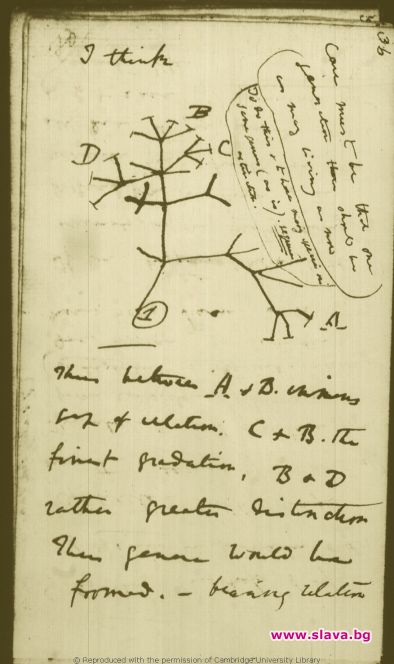 36
I think
Case must be that one
generation then should be
as many living as now
To do this & to have many species in
same genus (as is). requires
extinction.
B
D
C
1
A
Thus between A & B. immens
gap of relation. C & B. the
finest gradation, B & D
rather greater distinction
Thus genera would be
formed. — bearing relation
www.slava.bg
© Reproduced with the permission of Cambridge University Library